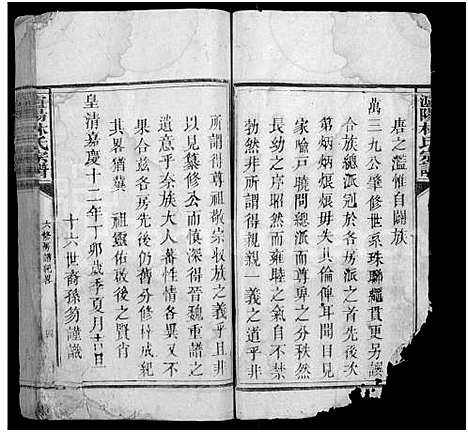 唐之滥惟自闢族
萬三九公肇修世系珠聯繩貫更另設
合族總派冠於各房派之首一
第炳炳烺烺毋失其倫俾耳聞目見
家喻戶曉問總派之分秩然
長幼之序而雍睦之氣自不禁
勃然非所謂得親親一義之道乎非
所謂得尊祖敬宗收族之義乎且非
以見纂修公而慎深得晉魏重譜之
遺意乎奈族大人蕃性情各異又不
果合茲各房先後仍舊分修梓成紀
其畧猶冀 祖靈佑啟後之賢肖
皇清嘉慶十二年丁卯歲季夏月吉日
十六世裔孫芴謹識
林氏宗譜
六修房譜紀畧